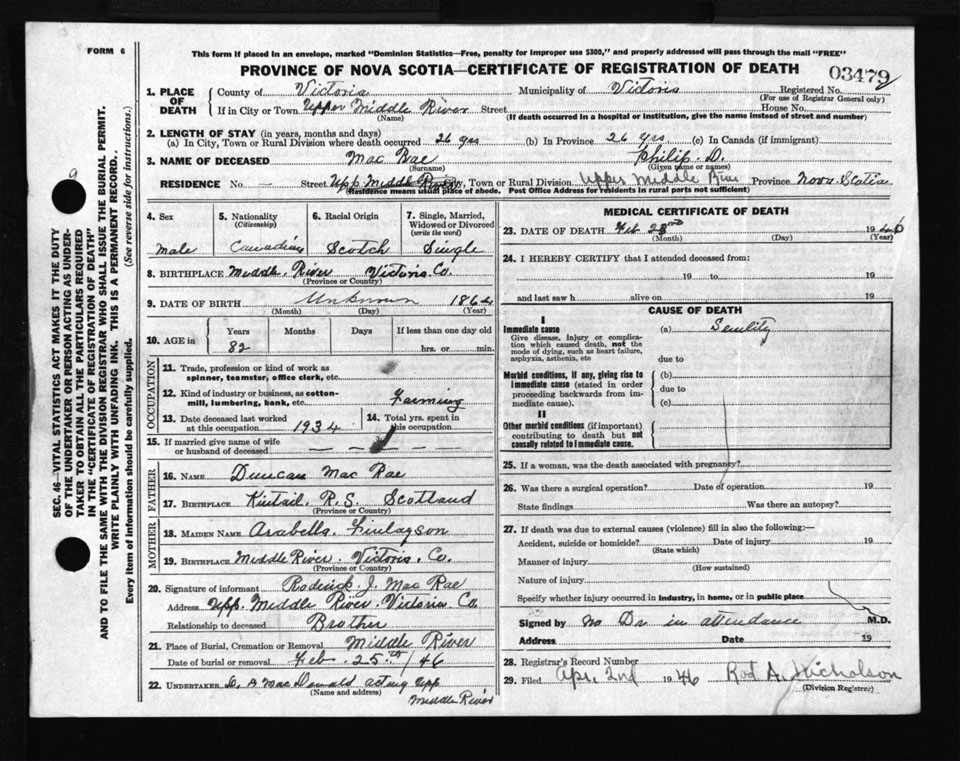 FORM 6
This form if placed in an envelope, marked "Dominion Statistics—Free, penalty for improper use $300," and properly addressed will pass through the mail "FREE"
PROVINCE OF NOVA SCOTIA—CERTIFICATE OF REGISTRATION OF DEATH
03479
SEC. 46—VITAL STATISTICS ACT MAKES IT THE DUTY
OF THE UNDERTAKER OR PERSON ACTING AS UNDER-
TAKER TO OBTAIN ALL THE PARTICULARS REQUIRED
IN THE "CERTIFICATE OF REGISTRATION OF DEATH"
AND TO FILE THE SAME WITH THE DIVISION REGISTRAR WHO SHALL ISSUE THE BURIAL PERMIT.
WRITE PLAINLY WITH UNFADING INK. THIS IS A PERMANENT RECORD.
Every item of information should be carefully supplied. (See reverse side for instructions.)
1. PLACE OF DEATH
County of Victoria Municipality of Victoria Registered No.
(For use of Registrar General only)
If in City or Town Upper Middle River Street House No.
(Name) (If death occurred in a hospital or institution, give the name instead of street and number)
2. LENGTH OF STAY (in years, months and days)
(a) In City, Town or Rural Division where death occurred 26 yrs (b) In Province 26 yrs (c) In Canada (if immigrant)
3. NAME OF DECEASED Mac Rae Philip D.
(Surname) (Given name or names)
RESIDENCE No. — Street Upp Middle River, Town or Rural Division Upper Middle River Province Nova Scotia
(Residence means usual place of abode. Post Office Address for residents in rural parts not sufficient)
4. Sex 5. Nationality (Citizenship) 6. Racial Origin 7. Single, Married, Widowed or Divorced (write the word)
male Canadian Scotch Single
8. BIRTHPLACE Middle River Victoria Co.
(Province or Country)
9. DATE OF BIRTH Unknown 1864
(Month) (Day) (Year)
10. AGE in Years Months Days If less than one day old
82 hrs. or min.
OCCUPATION
11. Trade, profession or kind of work as
spinner, teamster, office clerk, etc.
12. Kind of industry or business, as cotton-
mill, lumbering, bank, etc. Farming
13. Date deceased last worked at this occupation 1934 14. Total yrs. spent in this occupation
15. If married give name of wife
or husband of deceased — — — —
FATHER
16. NAME Duncan Mac Rae
17. BIRTHPLACE Kintail, R.S. Scotland
(Province or Country)
MOTHER
18. MAIDEN NAME Arabella Finlayson
19. BIRTHPLACE Middle River. Victoria. Co.
(Province or Country)
20. Signature of informant Roderick J. Mac Rae
Address Upp. Middle River. Victoria Co
Relationship to deceased Brother
21. Place of Burial, Cremation or Removal Middle River
Date of burial or removal Feb. 25th / 46
22. UNDERTAKER D. A Mac Donald acting Upp
(Name and address) Middle River
MEDICAL CERTIFICATE OF DEATH
23. DATE OF DEATH Feb 1946
(Month) (Day) (Year)
24. I HEREBY CERTIFY that I attended deceased from:
19 to 19
and last saw h alive on 19
CAUSE OF DEATH
I
Immediate cause (a) Senility
Give disease, injury or complica-
tion which caused death, not the
mode of dying, such as heart failure,
asphyxia, asthenia, etc due to
Morbid conditions, if any, giving rise to (b)
immediate cause (stated in order due to
proceeding backwards from im-
mediate cause). (c)
II
Other morbid conditions (if important)
contributing to death but not
causally related to immediate cause.
25. If a woman, was the death associated with pregnancy?
26. Was there a surgical operation? Date of operation 19
State findings Was there an autopsy?
27. If death was due to external causes (violence) fill in also the following:—
Accident, suicide or homicide? Date of injury 19
(State which)
Manner of injury
(How sustained)
Nature of injury
Specify whether injury occurred in industry, in home, or in public place
Signed by no Dr in attendance M.D.
Address Date 19
28. Registrar's Record Number
29. Filed Apr. 2nd 1946 Rod A. Nicholson
(Division Registrar)